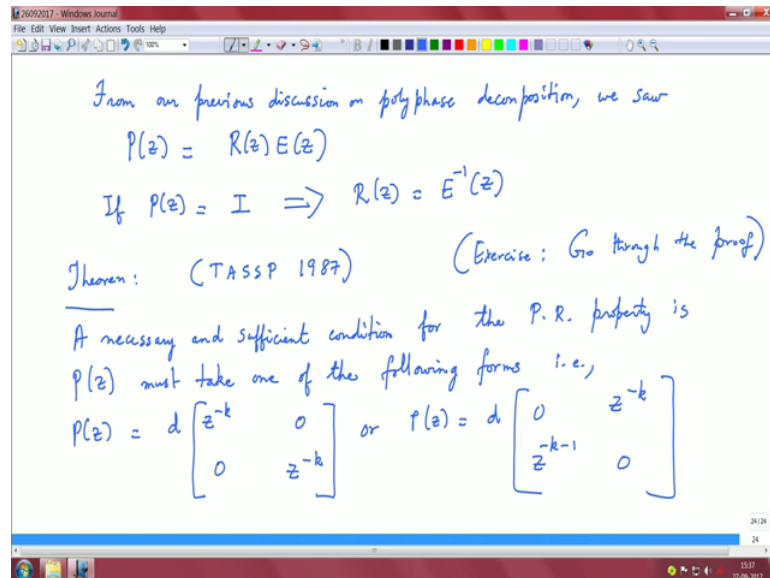 26092017 - Windows Journal
File Edit View Insert Actions Tools Help
100%
From our previous discussion on polyphase decomposition, we saw
P(z) = R(z) E(z)
If P(z) = I ⟹ R(z) = E⁻¹(z)
Theorem: (TASSP 1987) (Exercise: Go through the proof)
A necessary and sufficient condition for the P.R. property is
P(z) must take one of the following forms i.e.,
P(z) = d [z^{-k} 0; 0 z^{-k}] or P(z) = d [0 z^{-k}; z^{-k-1} 0]
24/24
24
15:37
27-09-2017